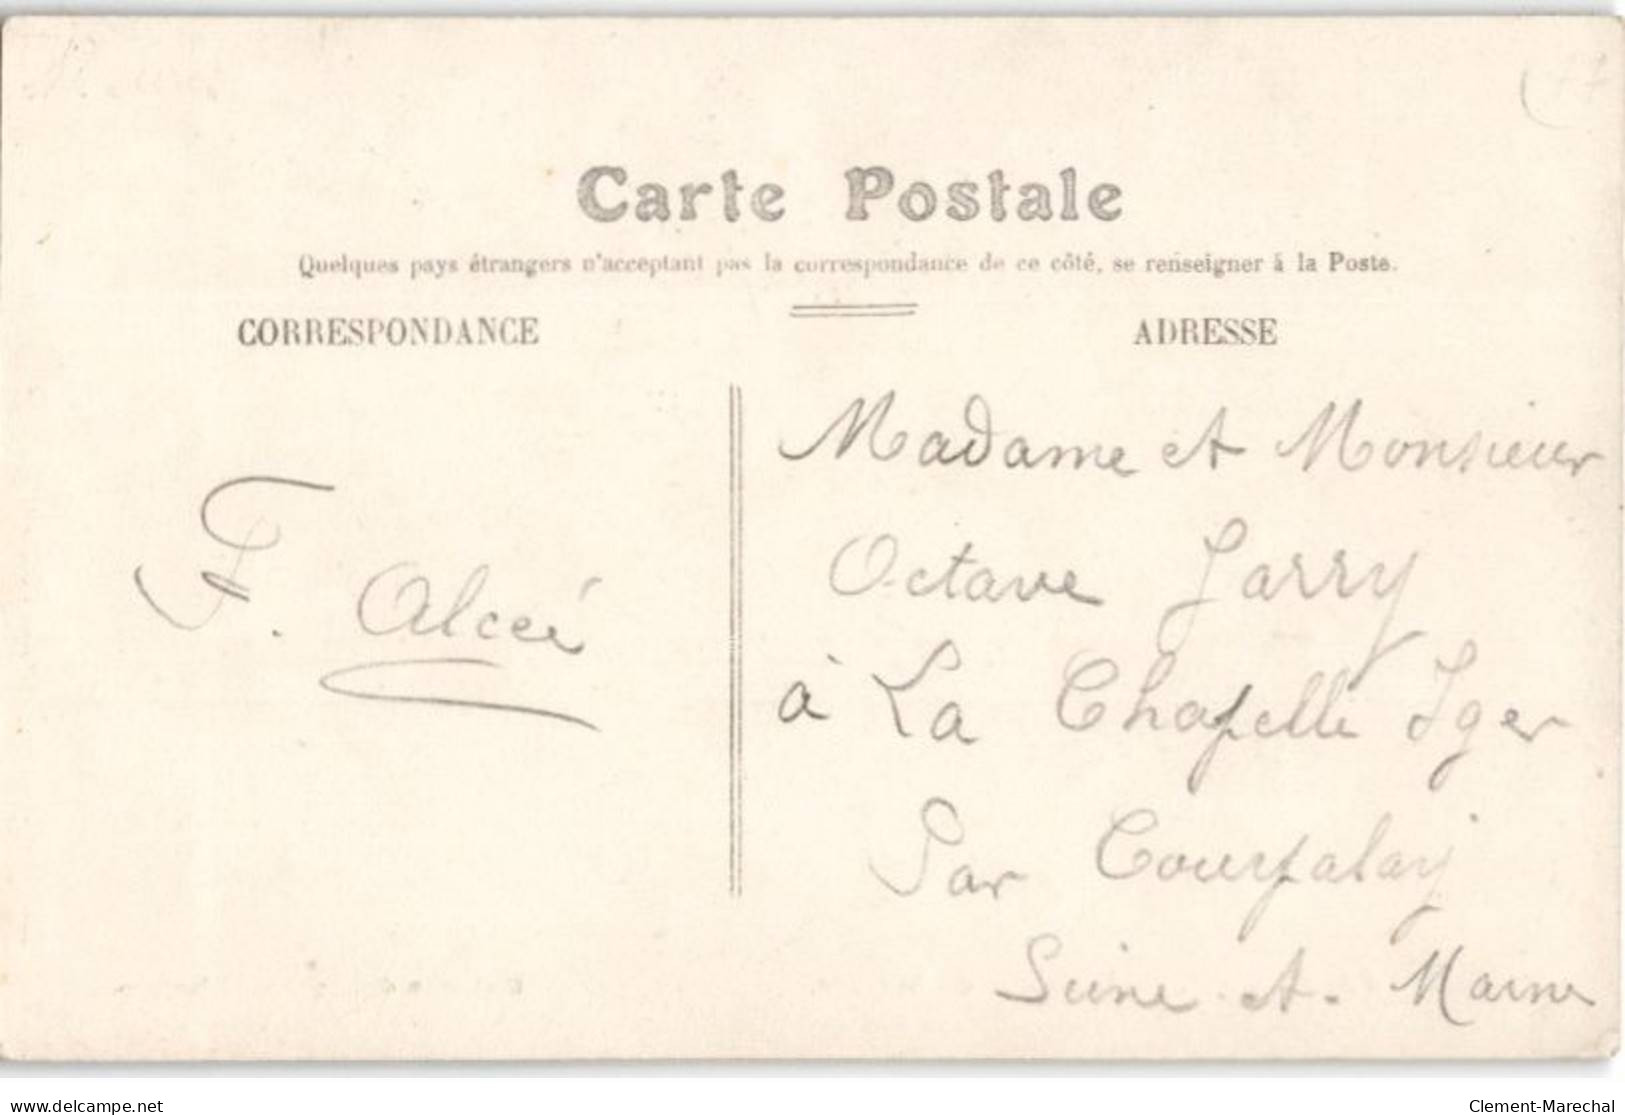 Carte Postale
Quelques pays étrangers n'acceptant pas la correspondance de ce côté, se renseigner à la Poste.
CORRESPONDANCE
F. Alceé
ADRESSE
Madame et Monsieur
Octave Jarry
à La Chapelle Iger
Par Courpalay
Seine-et-Marne
delcampe.net
Clement-Marechal